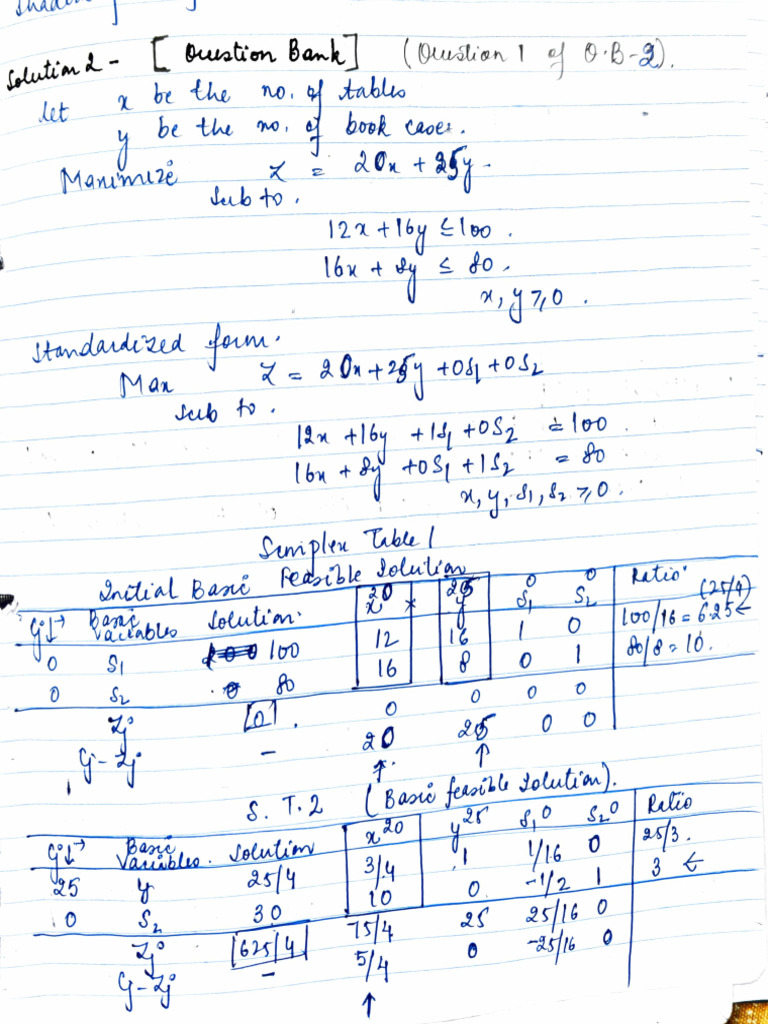 Solution 2 - [Question Bank] (Question 1 of Q.B-2).
let x be the no. of tables
y be the no. of book cases.
Maximize Z = 20x + 25y.
Sub to.
12x + 16y ≤ 100.
16x + 8y ≤ 80.
x, y ≥ 0.
Standardized form.
Max Z = 20x + 25y + 0S1 + 0S2
sub to.
12x + 16y + 1S1 + 0S2 = 100
16x + 8y + 0S1 + 1S2 = 80
x, y, S1, S2 ≥ 0.
Simplex Table 1
Initial Basic Feasible Solution
20 25 0 0 Ratio
Cj↓→ Basic Variables Solution x y S1 S2 (25/4)
0 S1 100 12 16 1 0 100/16 = 6.25 ←
0 S2 80 16 8 0 1 80/8 = 10.
Zj 0 0 0 0 0
Cj - Zj - 20 25 0 0
↑ ↑
S.T.2 (Basic feasible solution).
Cj↓→ Basic Variables. Solution x20 y25 S1 0 S2 0 Ratio
25 y 25/4 3/4 1 1/16 0 25/3.
0 S2 30 10 0 -1/2 1 3 ←
Zj 625/4 75/4 25 25/16 0
Cj - Zj - 5/4 0 -25/16 0
↑